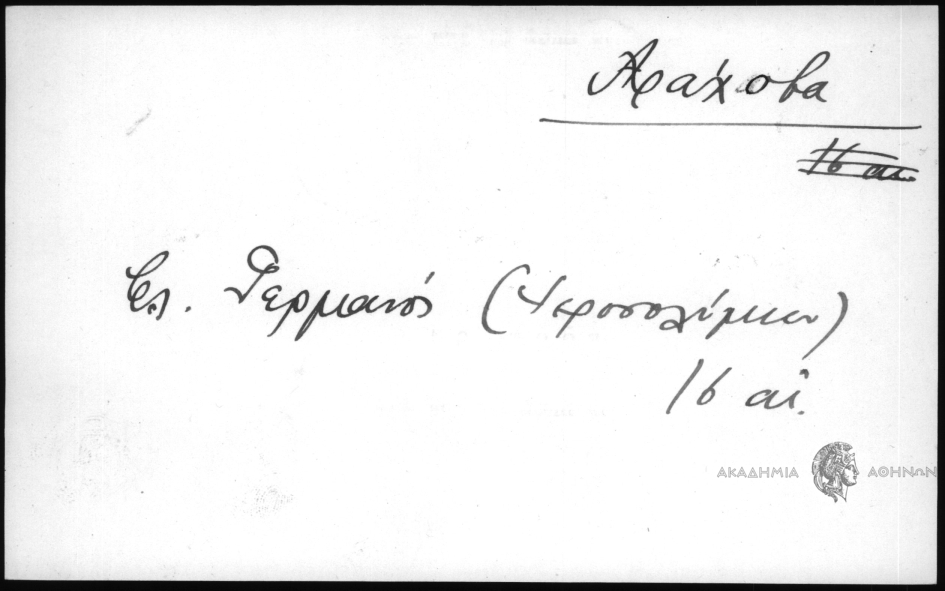 Αράχοβα
16 αι.
Γερμανός (Ιεροσολύμων)
16 αι.
ΑΚΑΔΗΜΙΑ ΑΘΗΝΩΝ